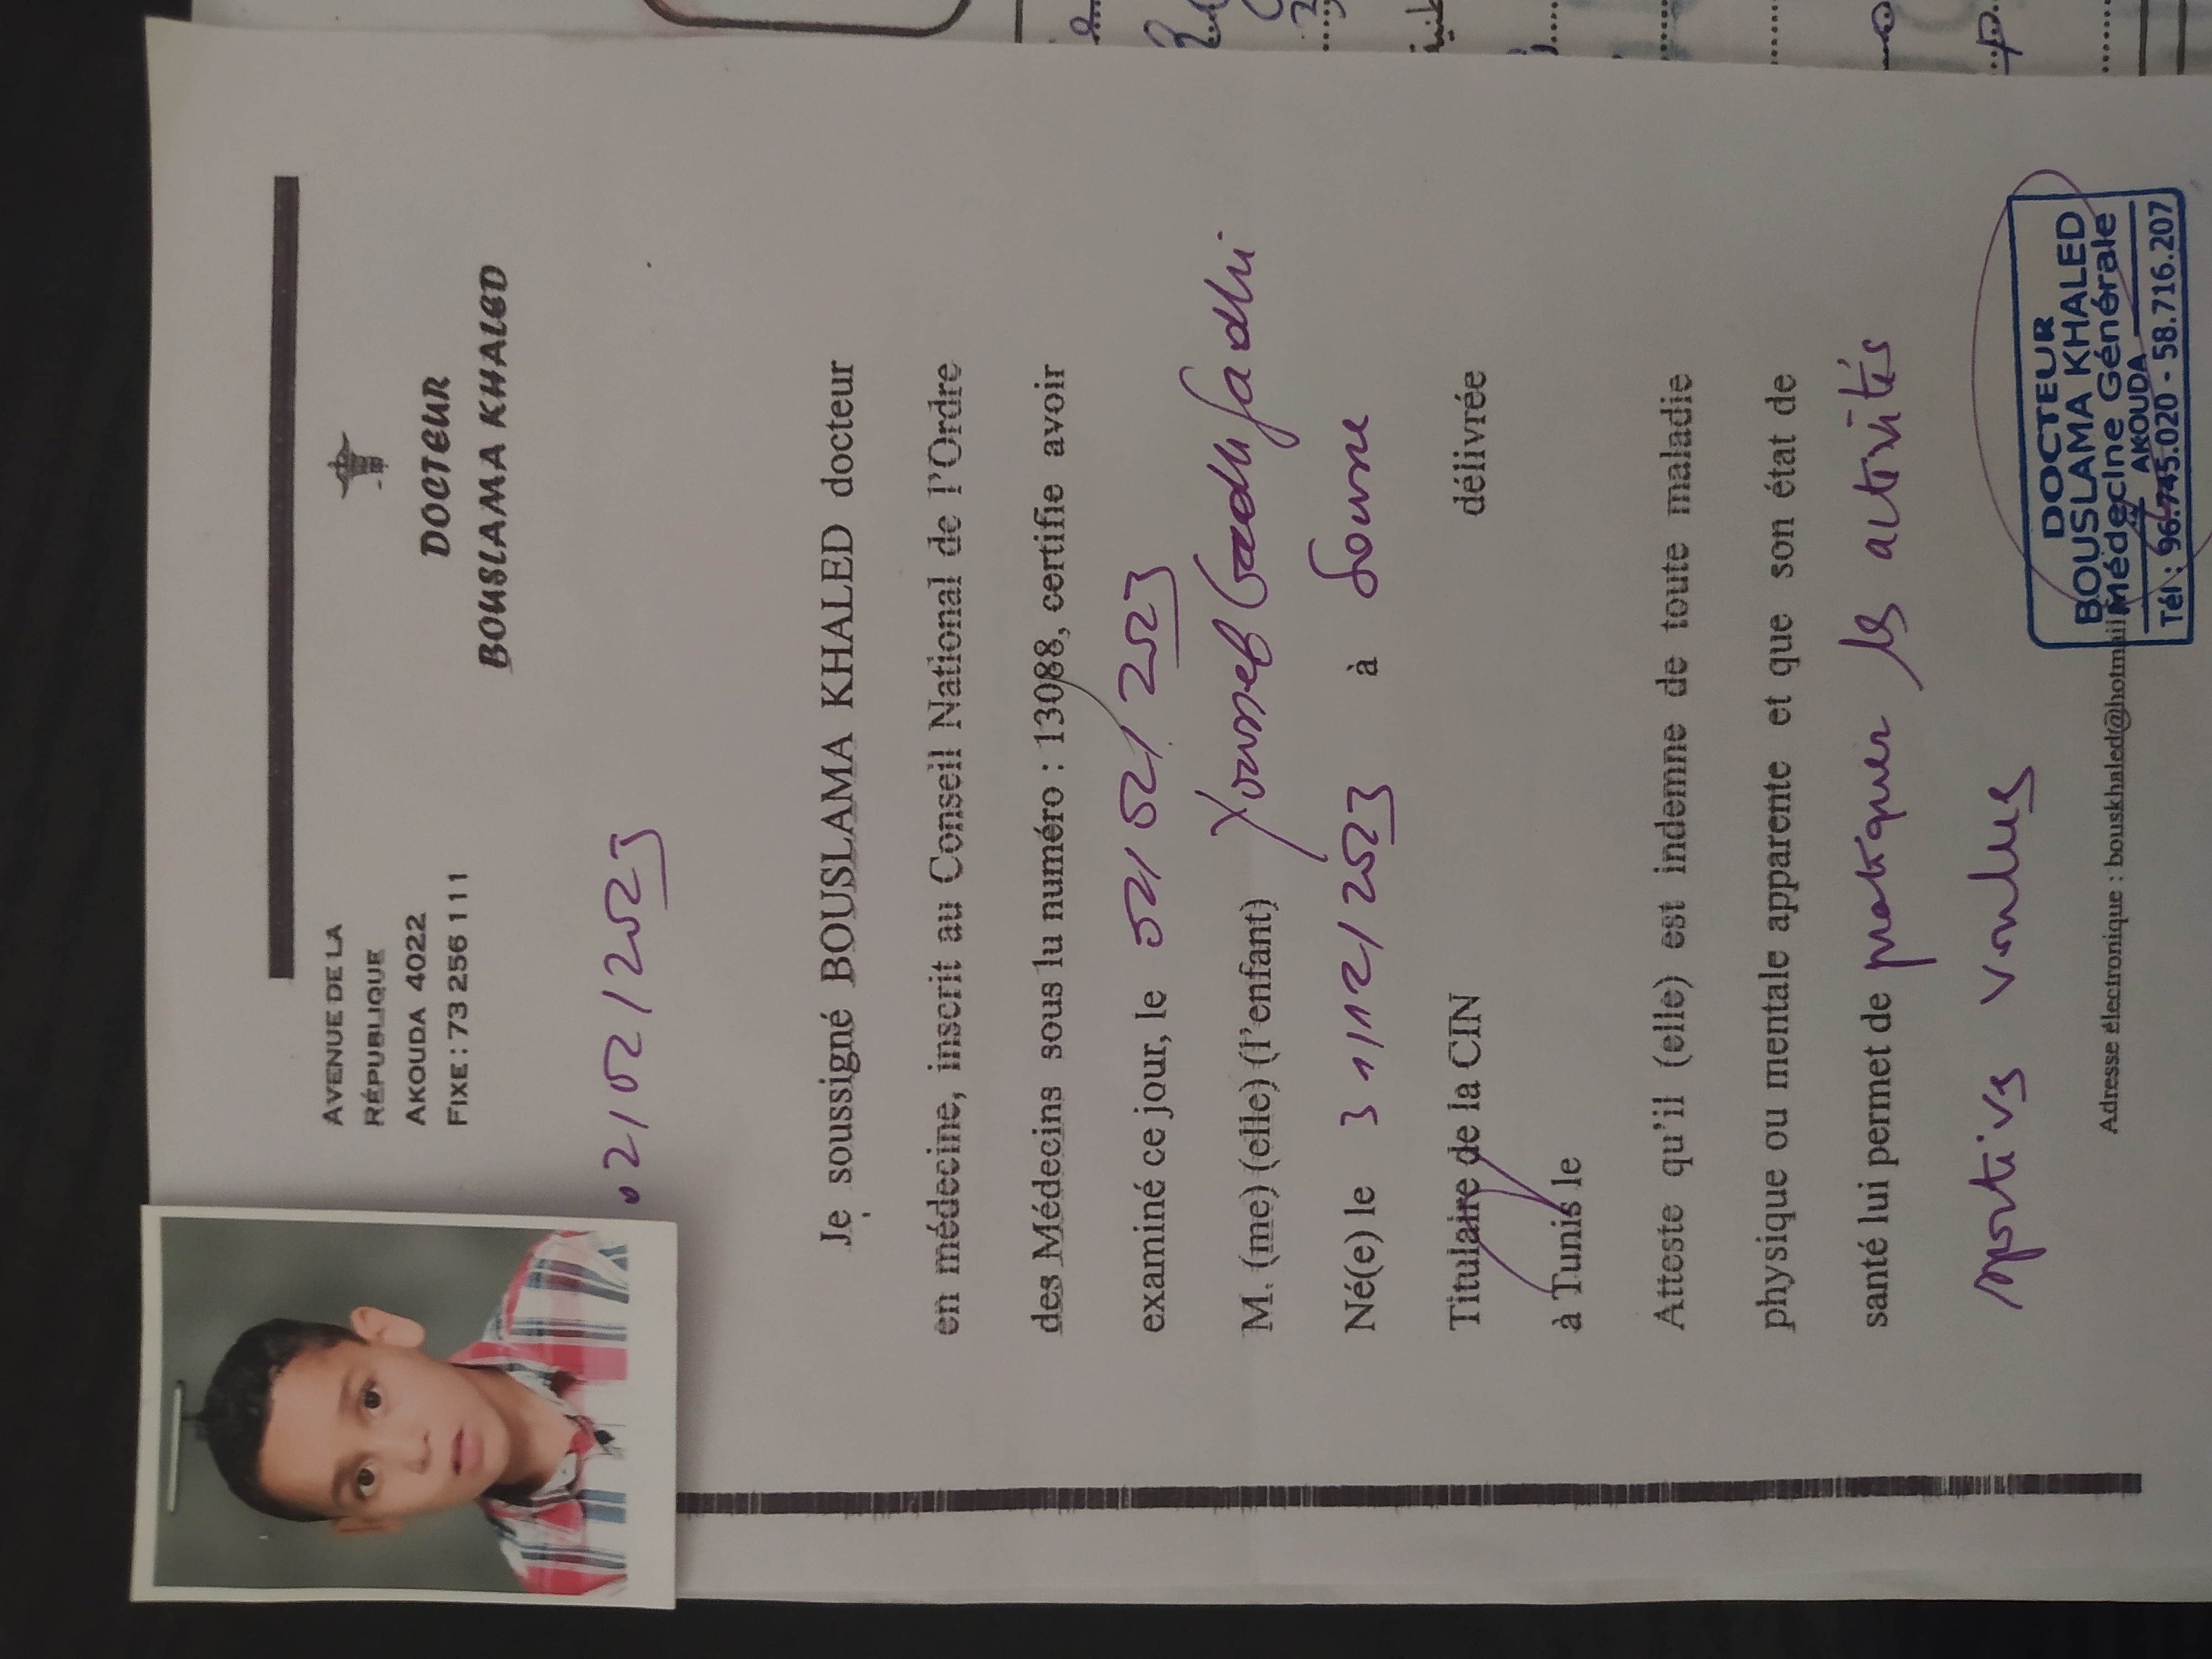 AVENUE DE LA
RÉPUBLIQUE
AKOUDA 4022
FIXE : 73 256 111
DOCTEUR
BOUSLAMA KHALED
02/02/2023
Je soussigné BOUSLAMA KHALED docteur
en médecine, inscrit au Conseil National de l'Ordre
des Médecins sous lu numéro : 13088, certifie avoir
examiné ce jour, le 02/02/2023
M. (me) (elle) (l'enfant) Youssef
Né(e) le 31/12/2023 à Sousse
Titulaire de la CIN délivrée
à Tunis le
Atteste qu'il (elle) est indemne de toute maladie
physique ou mentale apparente et que son état de
santé lui permet de pratiquer les activités
sportives voulues
Adresse électronique : bouskhaled@hotmail
DOCTEUR
BOUSLAMA KHALED
Médecine Générale
AKOUDA
Tél : 96.745.020 - 58.716.207